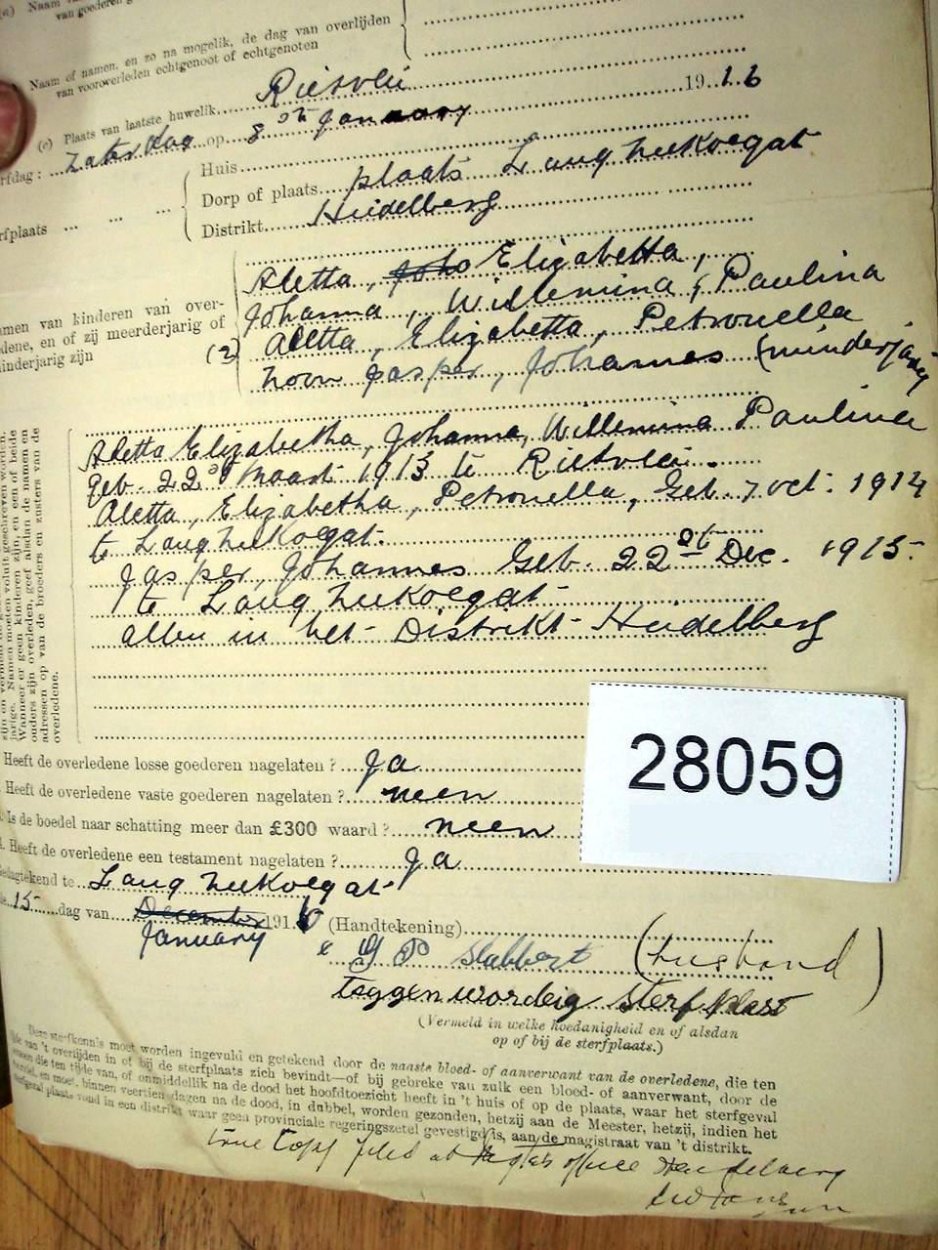 (a) Naam
van goederen g
Naam of namen, en zo na mogelik, de dag van overlijden
van vooroverleden echtgenoot of echtgenoten
(c) Plaats van laatste huwelik Rietvlei
rfdag: Zaterdag op 8ste January 1916
rfplaats ... ... ...
Huis
Dorp of plaats plaats Langzeekoegat
Distrikt Heidelberg
amen van kinderen van over-
dene, en of zij meerderjarig of
inderjarig zijn
Aletta, Joha Elizabetta,
Johanna, Willemina, Paulina
(2) Aletta, Elizabetta, Petronella
Jasper, Johannes (minderjarig
zijn en vermeld
jarige. Namen moeten voluit geschreven worden.
Wanneer er geen kinderen zijn, en een of beide
ouders zijn overleden, geef alsdan de namen en
adressen op van de broeders en zusters van de
overledene.
Aletta Elizabetha, Johanna, Willemina Paulina
geb. 22ste Maart 1913 te Rietvlei.
Aletta, Elizabetha, Petronella, Geb. 7 oct. 1914
te Langzeekoegat.
Jasper, Johannes Geb. 22ste Dec. 1915
te Langzeekoegat
allen in het Distrikt Heidelberg
Heeft de overledene losse goederen nagelaten ? Ja
Heeft de overledene vaste goederen nagelaten ? neen
Is de boedel naar schatting meer dan £300 waard ? neen
Heeft de overledene een testament nagelaten ? Ja
28059
edagtekend te Langzeekoegat
15 dag van December 1916
January
(Handtekening)
x J P Slabbert (husband)
teggenwordeig sterfplast
(Vermeld in welke hoedanigheid en of alsdan
op of bij de sterfplaats.)
Deze sterfkennis moet worden ingevuld en getekend door de naaste bloed- of aanverwant van de overledene, die ten
tijde van 't overlijden in of bij de sterfplaats zich bevindt—of bij gebreke van zulk een bloed- of aanverwant, door de
die ten tijde van, of onmiddellik na de dood het hoofdtoezicht heeft in 't huis of op de plaats, waar het sterfgeval
en moet, binnen veertien dagen na de dood, in dubbel, worden gezonden, hetzij aan de Meester, hetzij, indien het
sterfgeval plaats vond in een distrikt waar geen provinciale regeringszetel gevestigd is, aan de magistraat van 't distrikt.
True Copy filed at office Heidelberg